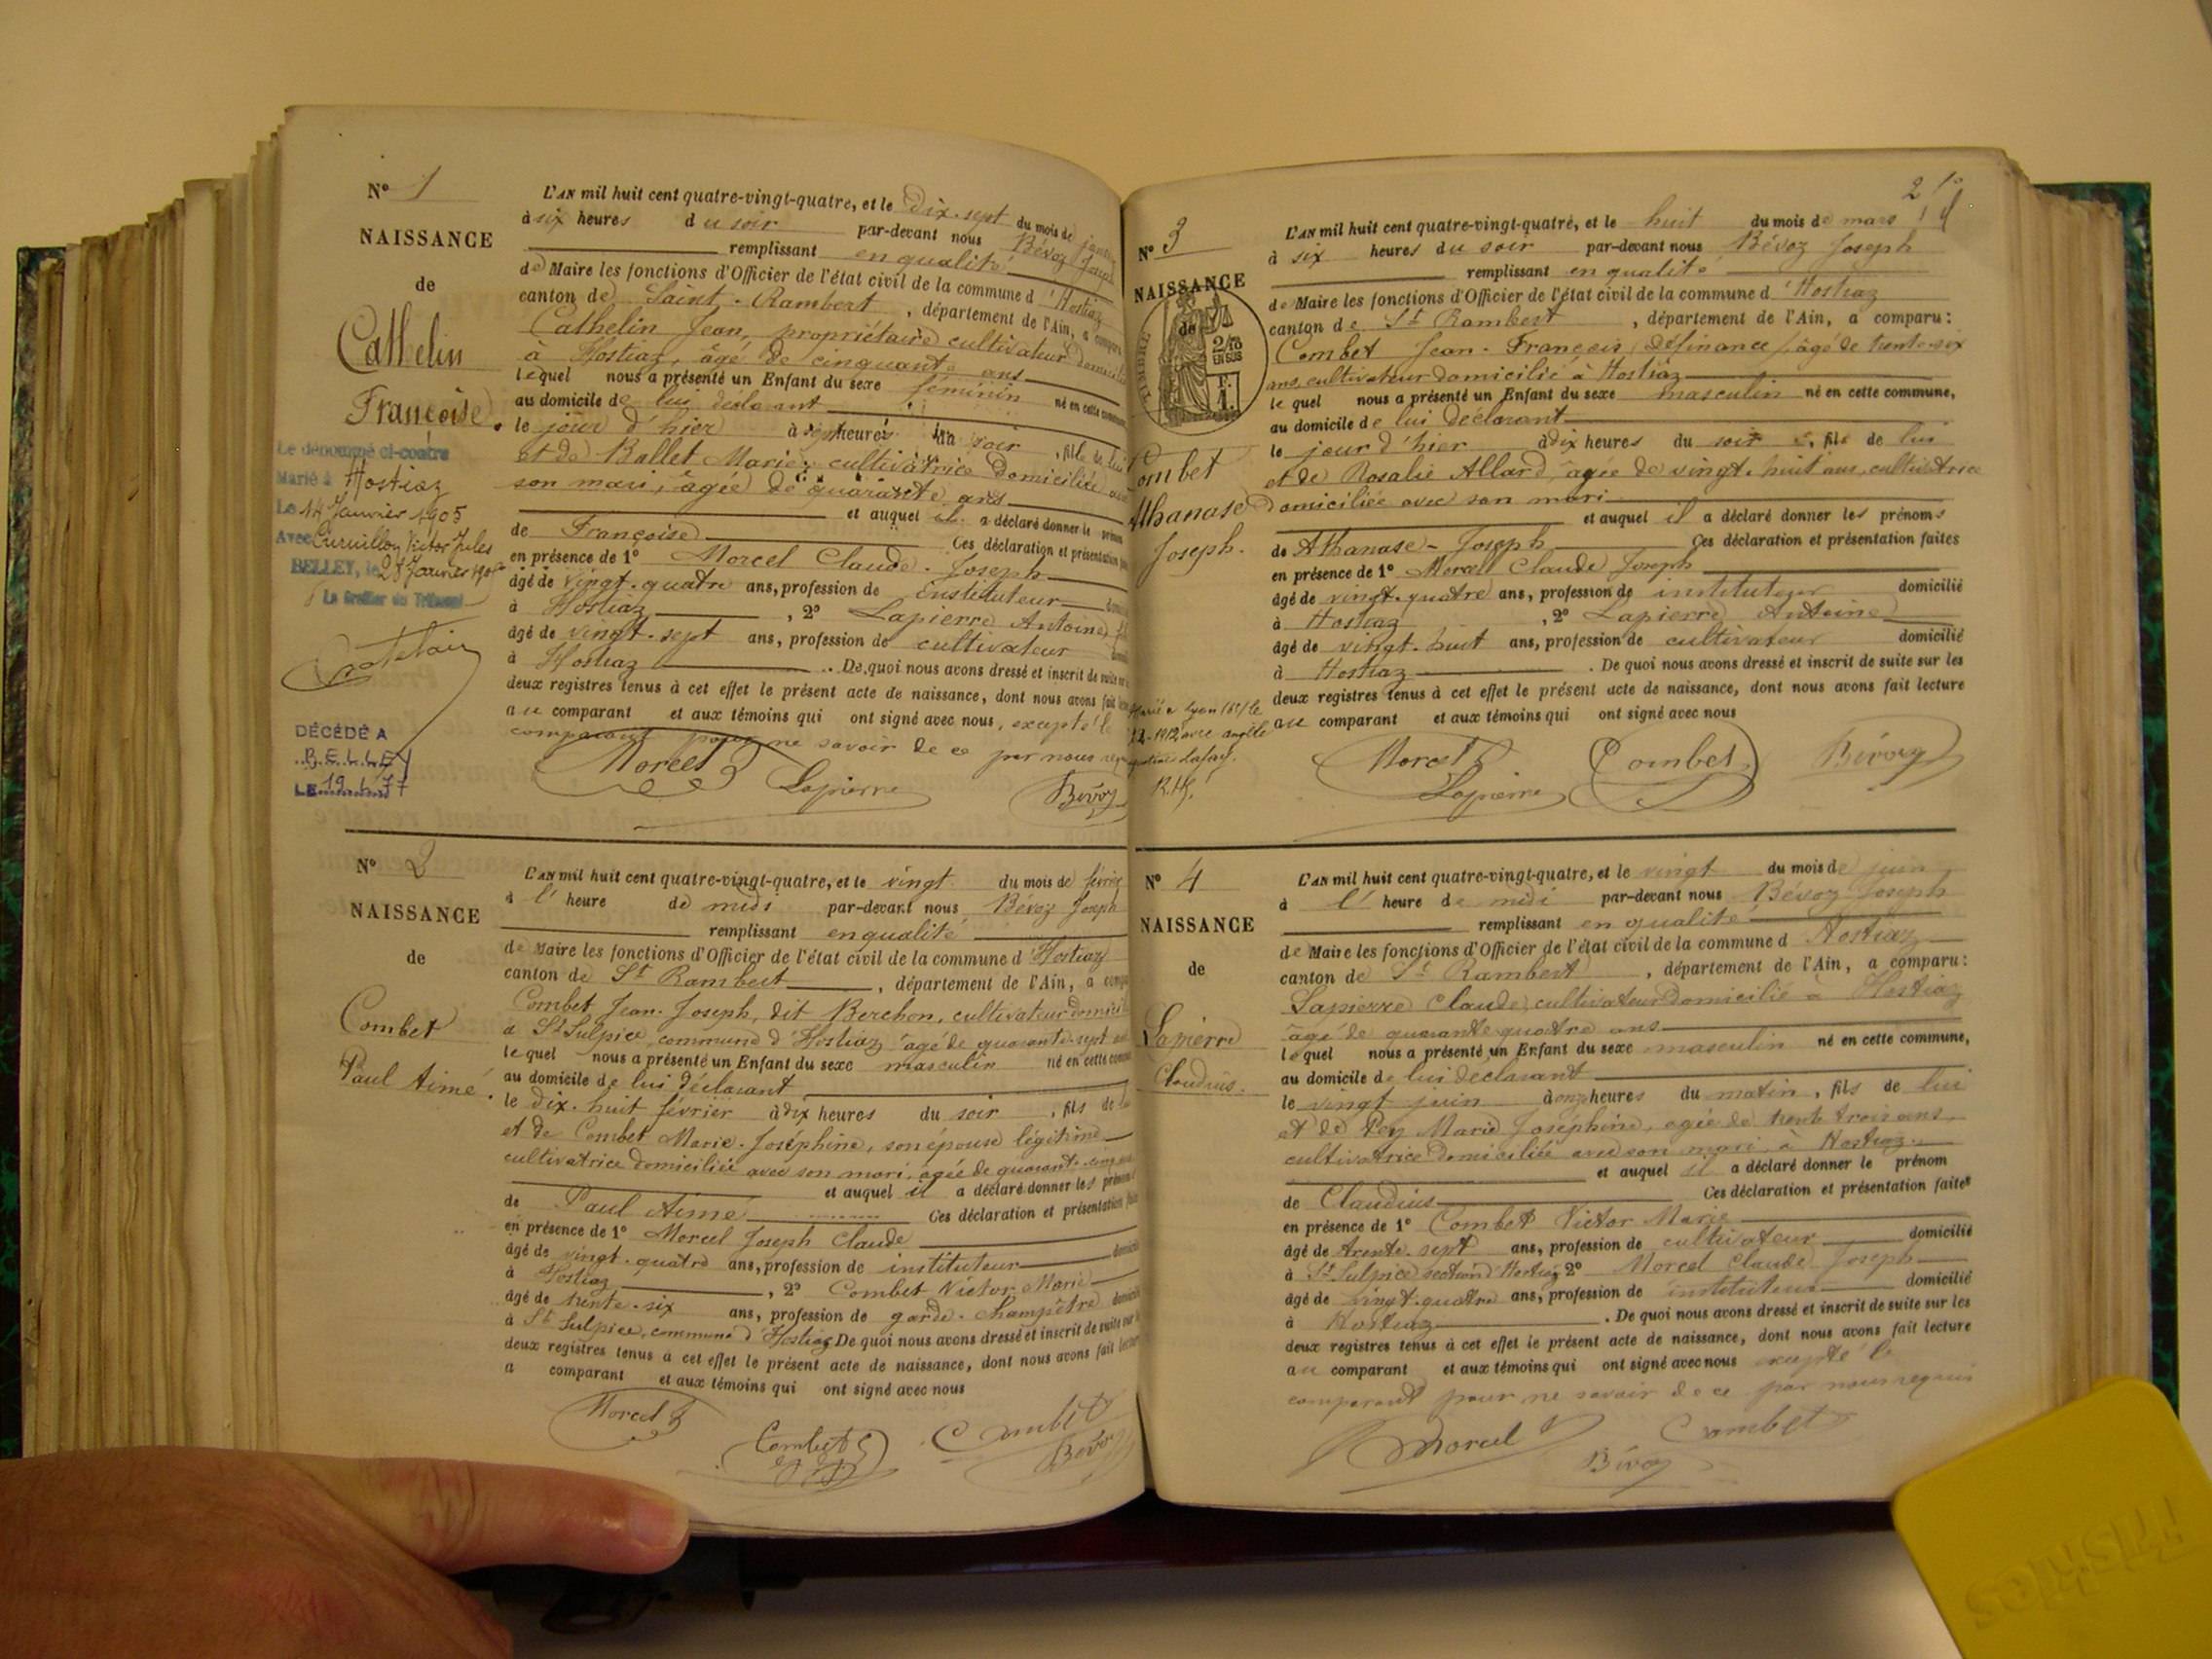 N° 1
NAISSANCE
de
Cathelin
Françoise.
Le dénommé ci-contre
Marié à Hostiaz
Le 14 Janvier 1905
Avec Victor Jules
BELLEY, le 28 Janvier
Le Greffier du Tribunal
DÉCÉDÉ A
BELLEY
LE 19.1.77
L'AN mil huit cent quatre-vingt-quatre, et le Dix-sept du mois de
à six heures du soir par-devant nous Bévoz
remplissant en qualité
de Maire les fonctions d'Officier de l'état civil de la commune d'Hostiaz
canton de Saint-Rambert, département de l'Ain, a comparu
Cathelin Jean, propriétaire cultivateur
à Hostiaz, âgé de cinquante ans
lequel nous a présenté un Enfant du sexe féminin né en cette commune,
au domicile de lui déclarant
le jour d'hier à heures du soir, fille de lui
et de Ballet Marie, cultivatrice domiciliée
son mari, âgée de quarante ans
et auquel il a déclaré donner le prénom
de Françoise Ces déclaration et présentation
en présence de 1° Morcel Claude-Joseph
âgé de vingt-quatre ans, profession de instituteur
à Hostiaz, 2° Lapierre Antoine
âgé de vingt-sept ans, profession de cultivateur
à Hostiaz. De quoi nous avons dressé et inscrit de suite
deux registres tenus à cet effet le présent acte de naissance, dont nous avons fait
au comparant et aux témoins qui ont signé avec nous, excepté le
comparant pour ne savoir de ce par nous
Morcel Lapierre Bévoz
N° 2
NAISSANCE
de
Combet
Paul Aimé.
L'AN mil huit cent quatre-vingt-quatre, et le vingt du mois de
à l' heure de midi par-devant nous Bévoz Joseph
remplissant en qualité
de Maire les fonctions d'Officier de l'état civil de la commune d'Hostiaz
canton de St Rambert, département de l'Ain, a
Combet Jean-Joseph, dit Berchon, cultivateur
à St Sulpice, commune d'Hostiaz âgé de quarante-sept
lequel nous a présenté un Enfant du sexe masculin né en cette
au domicile de lui déclarant
le dix-huit février à dix heures du soir, fils de
et de Combet Marie-Joséphine, son épouse légitime
cultivatrice domiciliée avec son mari, âgée de quarante-cinq
et auquel il a déclaré donner les
de Paul Aimé Ces déclaration et présentation
en présence de 1° Morcel Joseph Claude
âgé de vingt-quatre ans, profession de instituteur
à Hostiaz, 2° Combet Victor-Marie
âgé de trente-six ans, profession de garde-champêtre
à St Sulpice, commune d'Hostiaz De quoi nous avons dressé et inscrit de suite
deux registres tenus à cet effet le présent acte de naissance, dont nous avons fait
a comparant et aux témoins qui ont signé avec nous
Morcel Combet Combet
Bévoz
2
N° 3
NAISSANCE
de
TIMBRE
2/10
EN SUS
F.
1.
Combet
Athanase
Joseph.
L'AN mil huit cent quatre-vingt-quatre, et le huit du mois de mars
à six heures du soir par-devant nous Bévoz Joseph
remplissant en qualité
de Maire les fonctions d'Officier de l'état civil de la commune d'Hostiaz
canton de St Rambert, département de l'Ain, a comparu:
Combet Jean-François, âgé de trente-six
ans, cultivateur domicilié à Hostiaz
lequel nous a présenté un Enfant du sexe masculin né en cette commune,
au domicile de lui déclarant
le jour d'hier à dix heures du soir, fils de lui
et de Rosalie Allard, âgée de vingt-huit ans, cultivatrice
domiciliée avec son mari
et auquel il a déclaré donner les prénoms
de Athanase-Joseph Ces déclaration et présentation faites
en présence de 1° Morcel Claude Joseph
âgé de vingt-quatre ans, profession de instituteur domicilié
à Hostiaz, 2° Lapierre Antoine
âgé de vingt-huit ans, profession de cultivateur domicilié
à Hostiaz. De quoi nous avons dressé et inscrit de suite sur les
deux registres tenus à cet effet le présent acte de naissance, dont nous avons fait lecture
au comparant et aux témoins qui ont signé avec nous
Morcel Combet Bévoz
Lapierre
N° 4
NAISSANCE
de
Lapierre
Claudius.
L'AN mil huit cent quatre-vingt-quatre, et le vingt du mois de juin
à l' heure de midi par-devant nous Bévoz Joseph
remplissant en qualité
de Maire les fonctions d'Officier de l'état civil de la commune d'Hostiaz
canton de St Rambert, département de l'Ain, a comparu:
Lapierre Claude, cultivateur domicilié à Hostiaz
âgé de quarante-quatre ans
lequel nous a présenté un Enfant du sexe masculin né en cette commune,
au domicile de lui déclarant
le vingt juin à onze heures du matin, fils de lui
et de Pey Marie Joséphine, âgée de trente trois ans,
cultivatrice domiciliée avec son mari, à Hostiaz.
et auquel il a déclaré donner le prénom
de Claudius Ces déclaration et présentation faites
en présence de 1° Combet Victor Marie
âgé de trente-sept ans, profession de cultivateur domicilié
à St Sulpice section d'Hostiaz 2° Morcel Claude Joseph
âgé de vingt-quatre ans, profession de instituteur domicilié
à Hostiaz. De quoi nous avons dressé et inscrit de suite sur les
deux registres tenus à cet effet le présent acte de naissance, dont nous avons fait lecture
au comparant et aux témoins qui ont signé avec nous excepté le
comparant pour ne savoir de ce par nous requis
Morcel Combet
Bévoz